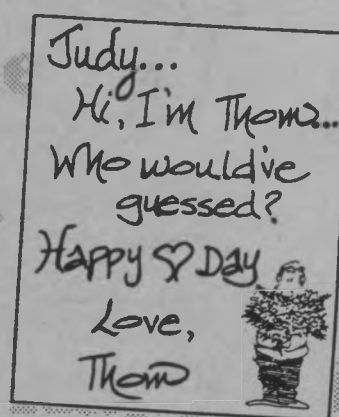 Judy...
Hi, I'm Thom...
Who would've
guessed?
Happy ♡ Day
Love,
Thom